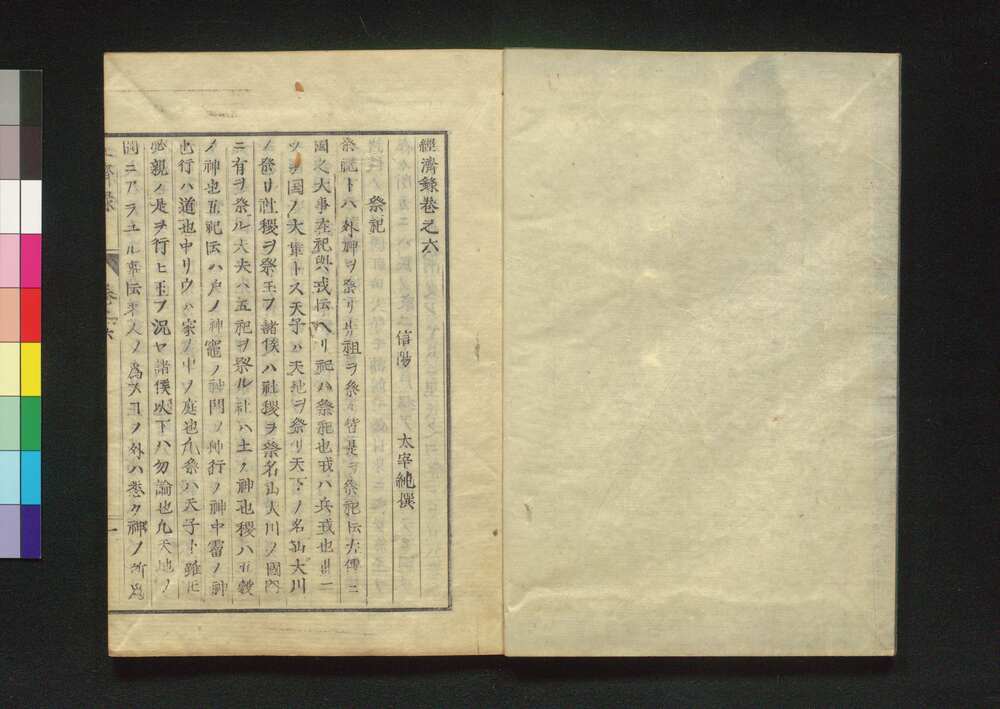 經濟錄卷之六
信陽 太宰純撰
祭祀
祭祀トハ外神ヲ祭リ先祖ヲ祭ル皆是ヲ祭祀ト云左傳ニ
國之大事在祀與戎ト云ヘリ祀ハ祭祀也戎ハ兵戎也此二
ツヲ国ノ大事トス天子ハ天地ヲ祭リ天下ノ名山大川
ヲ祭リ社稷ヲ祭玉フ諸侯ハ社稷ヲ祭名山大川ノ國内
ニ有ヲ祭ル大夫ハ五祀ヲ祭ル社ハ土ノ神也稷ハ五穀
ノ神也五祀ト云ハ戸ノ神竈ノ神門ノ神行ノ神中霤ノ神
也行ハ道也中リウハ家ノ中ノ庭也凡祭ハ天子ト雖モ
必親ラ是ヲ行ヒ玉フ況ヤ諸侯以下ハ勿論也凡天地ノ
間ニアラユル事ト云人ノ爲ス玉ノ外ハ悉ク神ノ所爲
經濟錄 卷之六 一